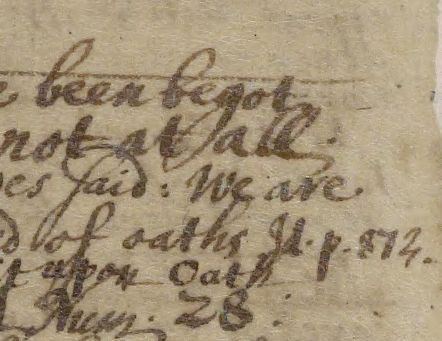 been begot
not at all.
said: We are
of oaths It. p. 812.
upon Oath
Num. 28: